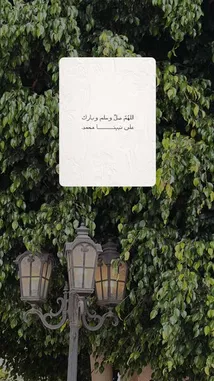 اللهم صل وسلم وبارك
على نبينـــــــا محمد